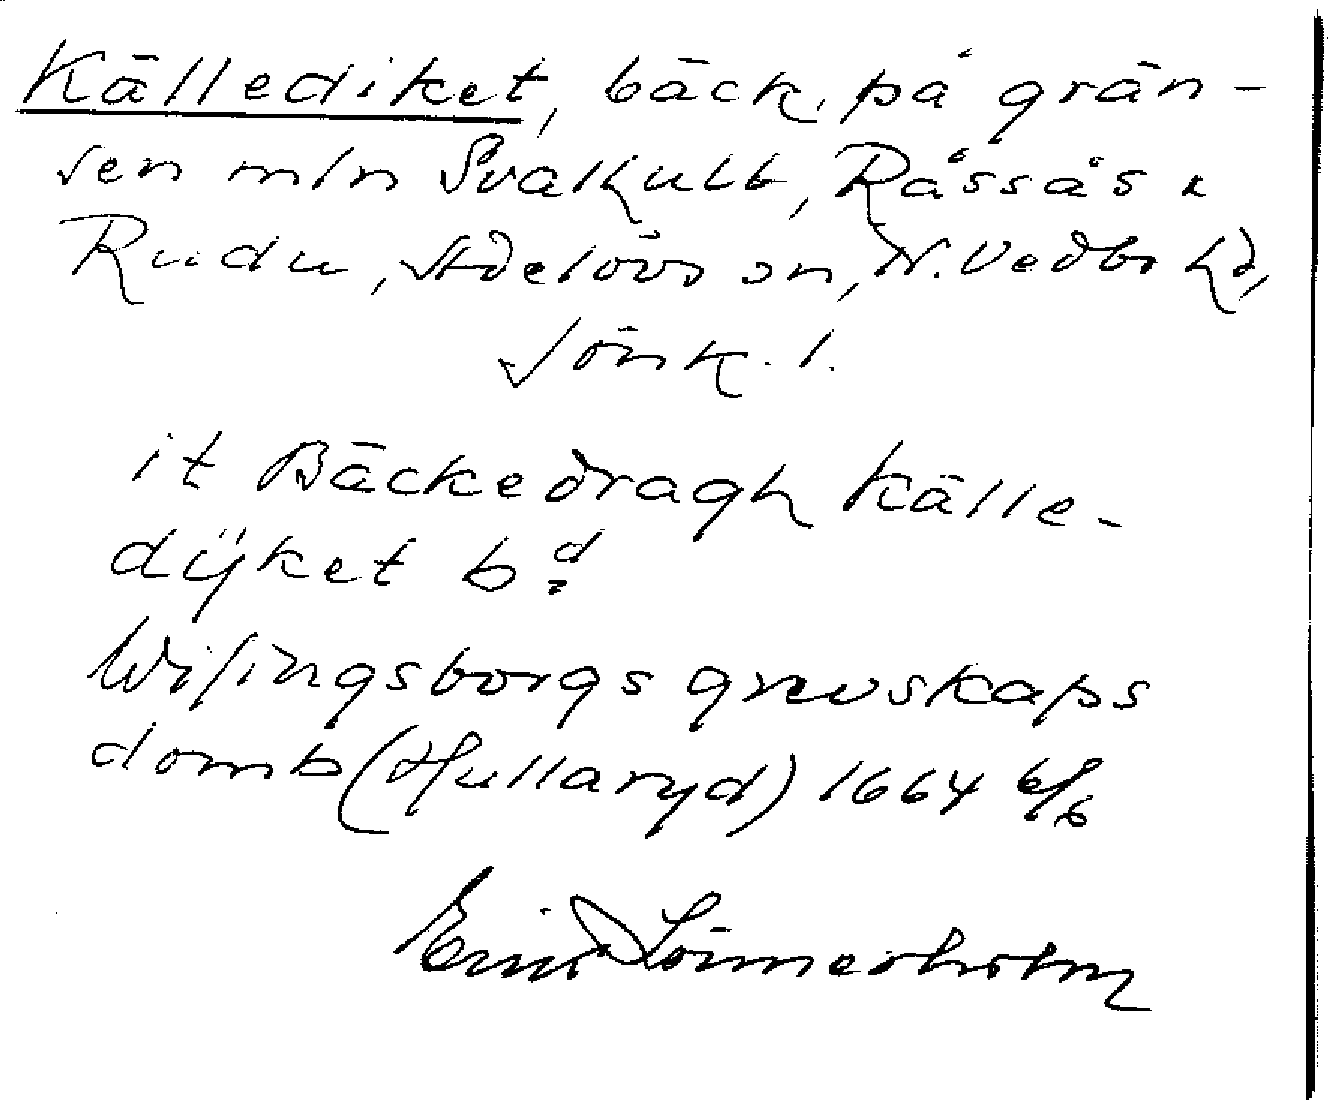 Källediket, bäck, på grän-
sen mln Svalhult, Råssås &
Rudu, Adelövs sn, N. Vedbo hd,
Jönk. l.
it Bäckedragh Källe-
dÿket bd
Wisingsborgs grevskaps
domb (Hullaryd) 1664 6/6